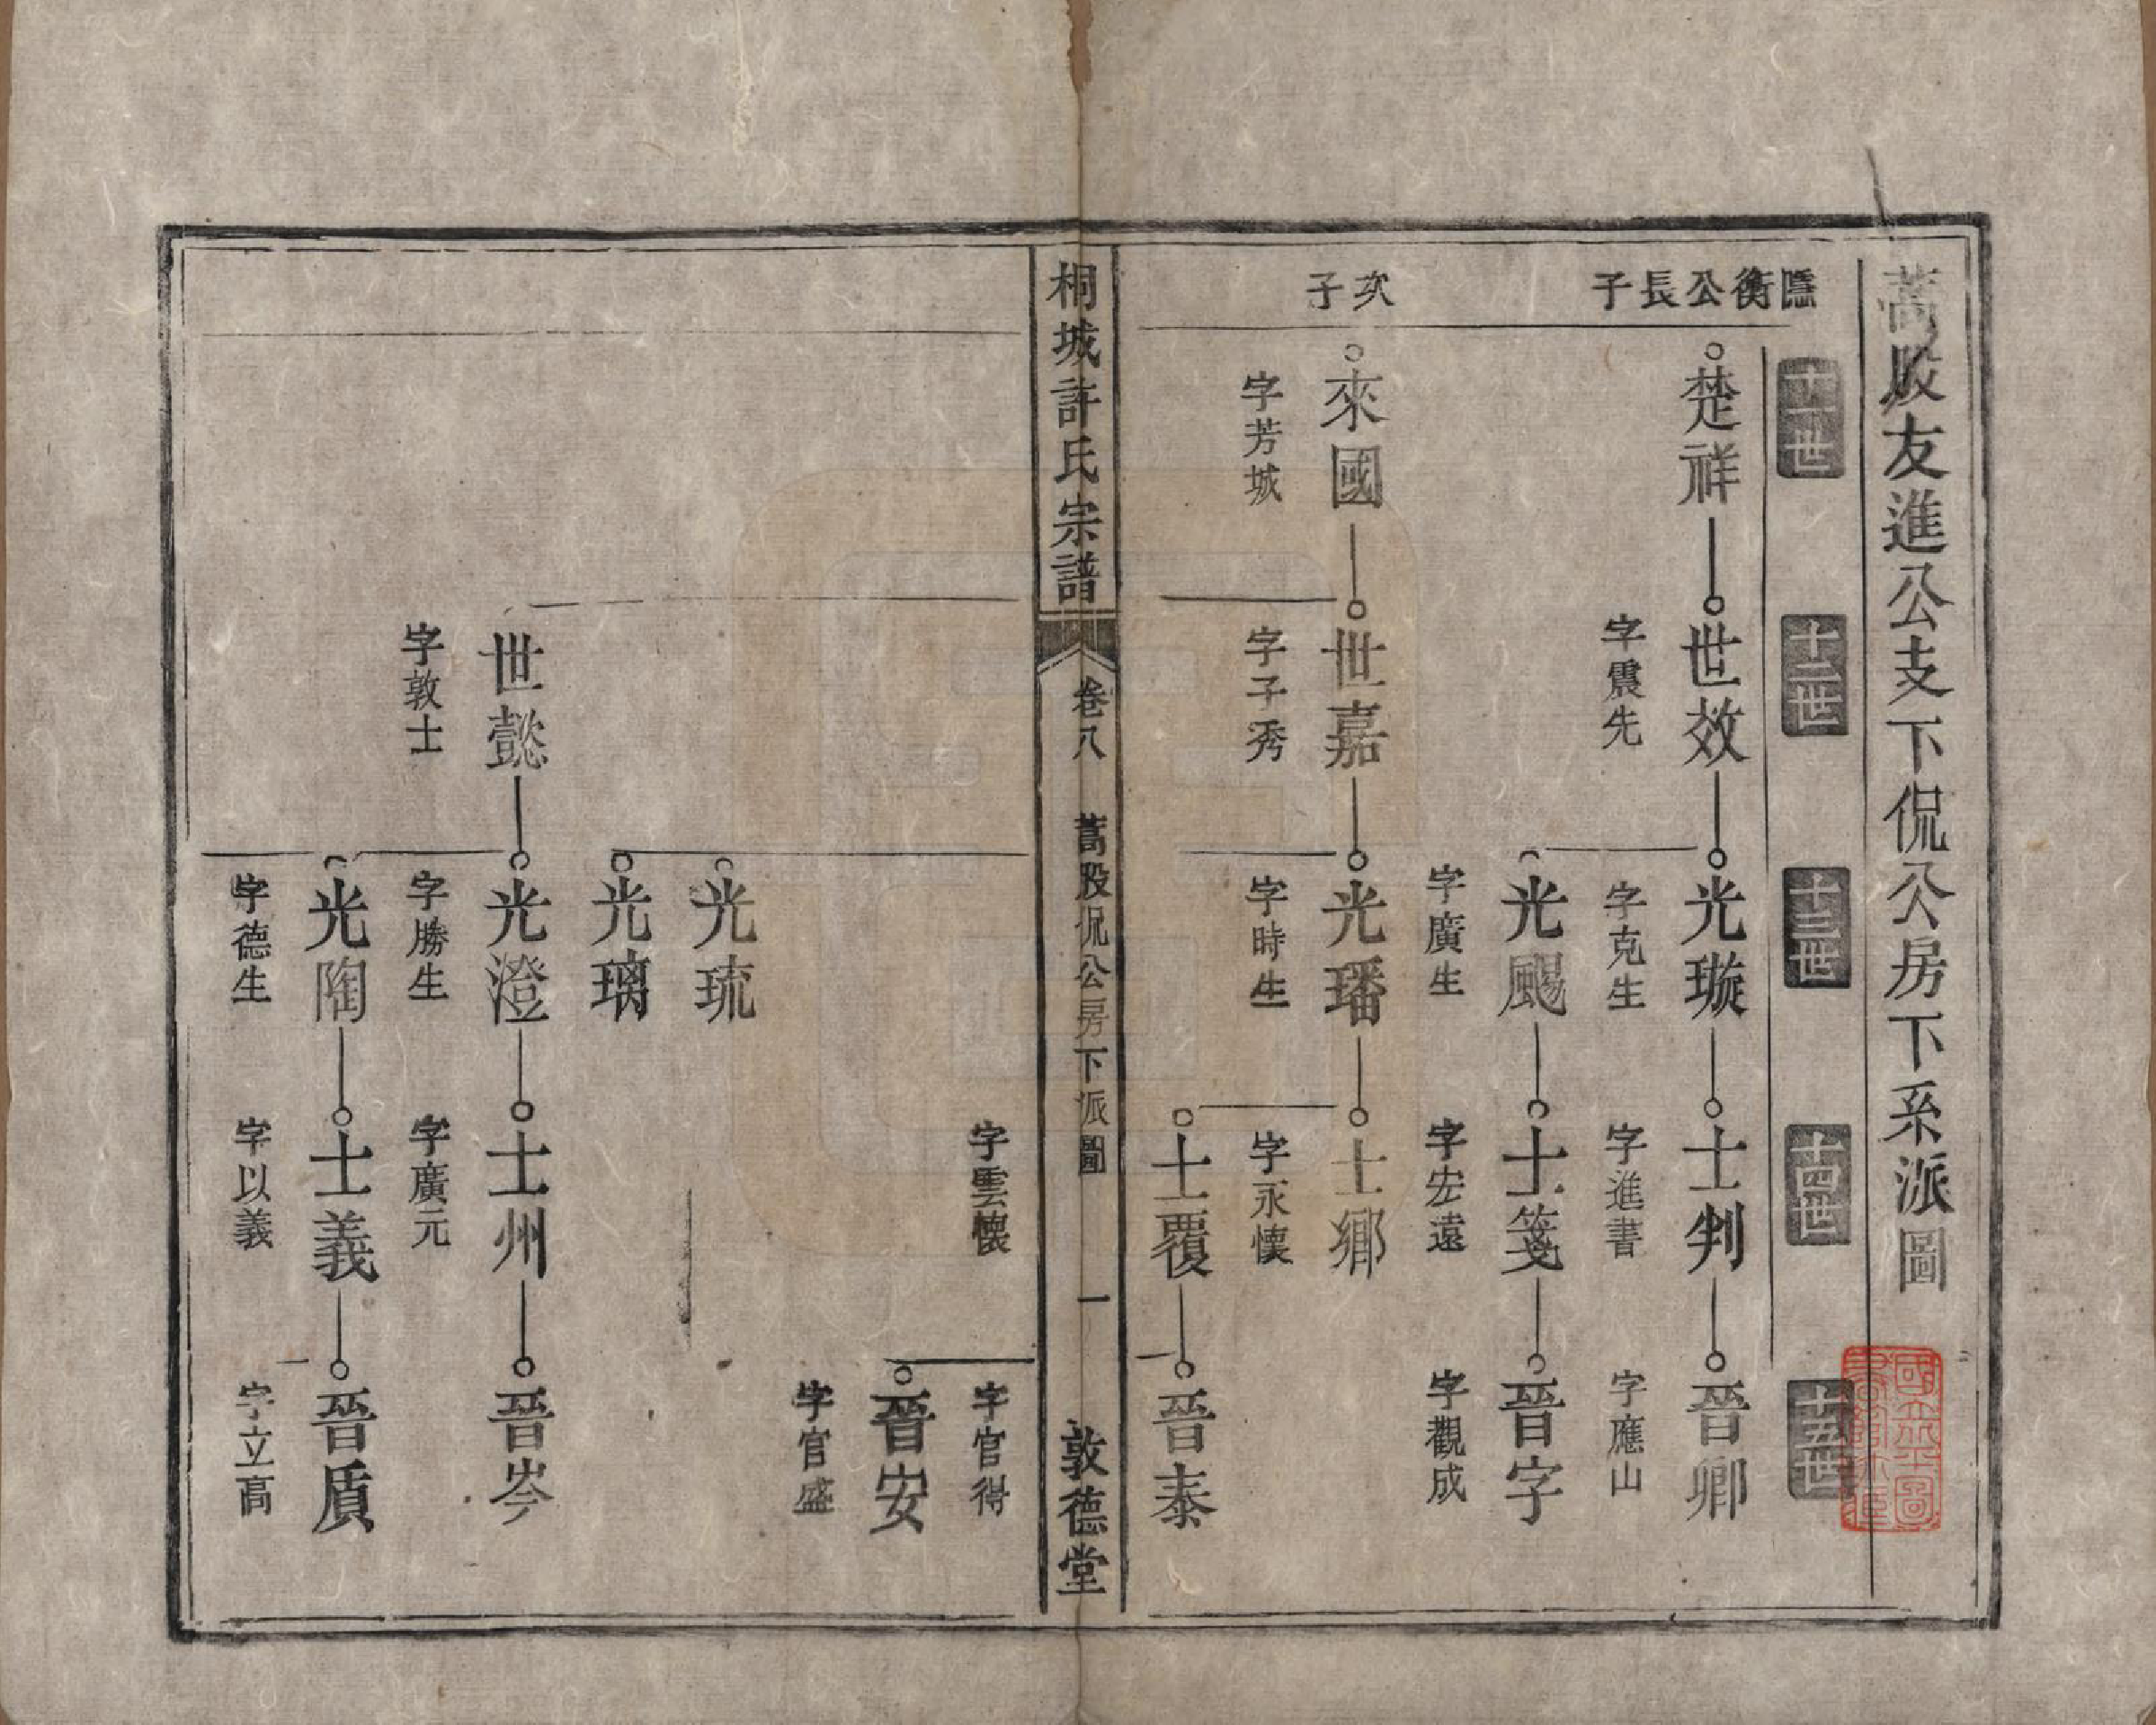 蒿股友進公支下侃公房下系派圖
十一世
十二世
十三世
十四世
十五世
隱衡公長子
楚祥
世效
光璇
士判
晉卿
字震先
字克生
字進書
字應山
光颺
士箋
晉字
字廣生
字宏遠
字觀成
次子
來國
世嘉
光璠
士鄉
字芳城
字子秀
字時生
字永懷
士覆
晉泰
桐城許氏宗譜
卷八
蒿股侃公房下派圖
一
敦德堂
字雲懷
字官得
晉安
字官盛
光琉
光璃
世懿
光澄
士州
晉岑
字敦士
字勝生
字廣元
光陶
士義
晉質
字德生
字以義
字立高